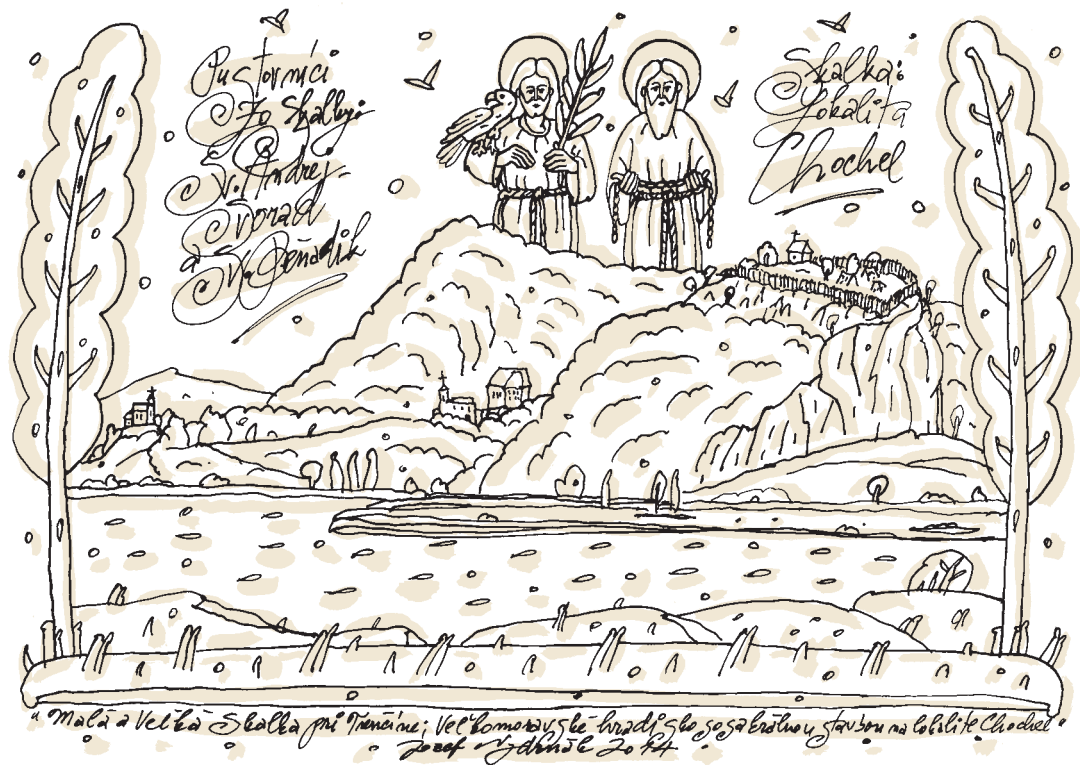 Pustovníci
zo Skalky:
Sv. Andrej-
Svorad
a Sv. Beňadik
Skalka:
Lokalita
Chochel
"Malá a Veľká Skalka pri Trenčíne; Veľkomoravské hradisko so sakrálnou stavbou na lokalite Chochel"
Jozef Vydrnák 2014